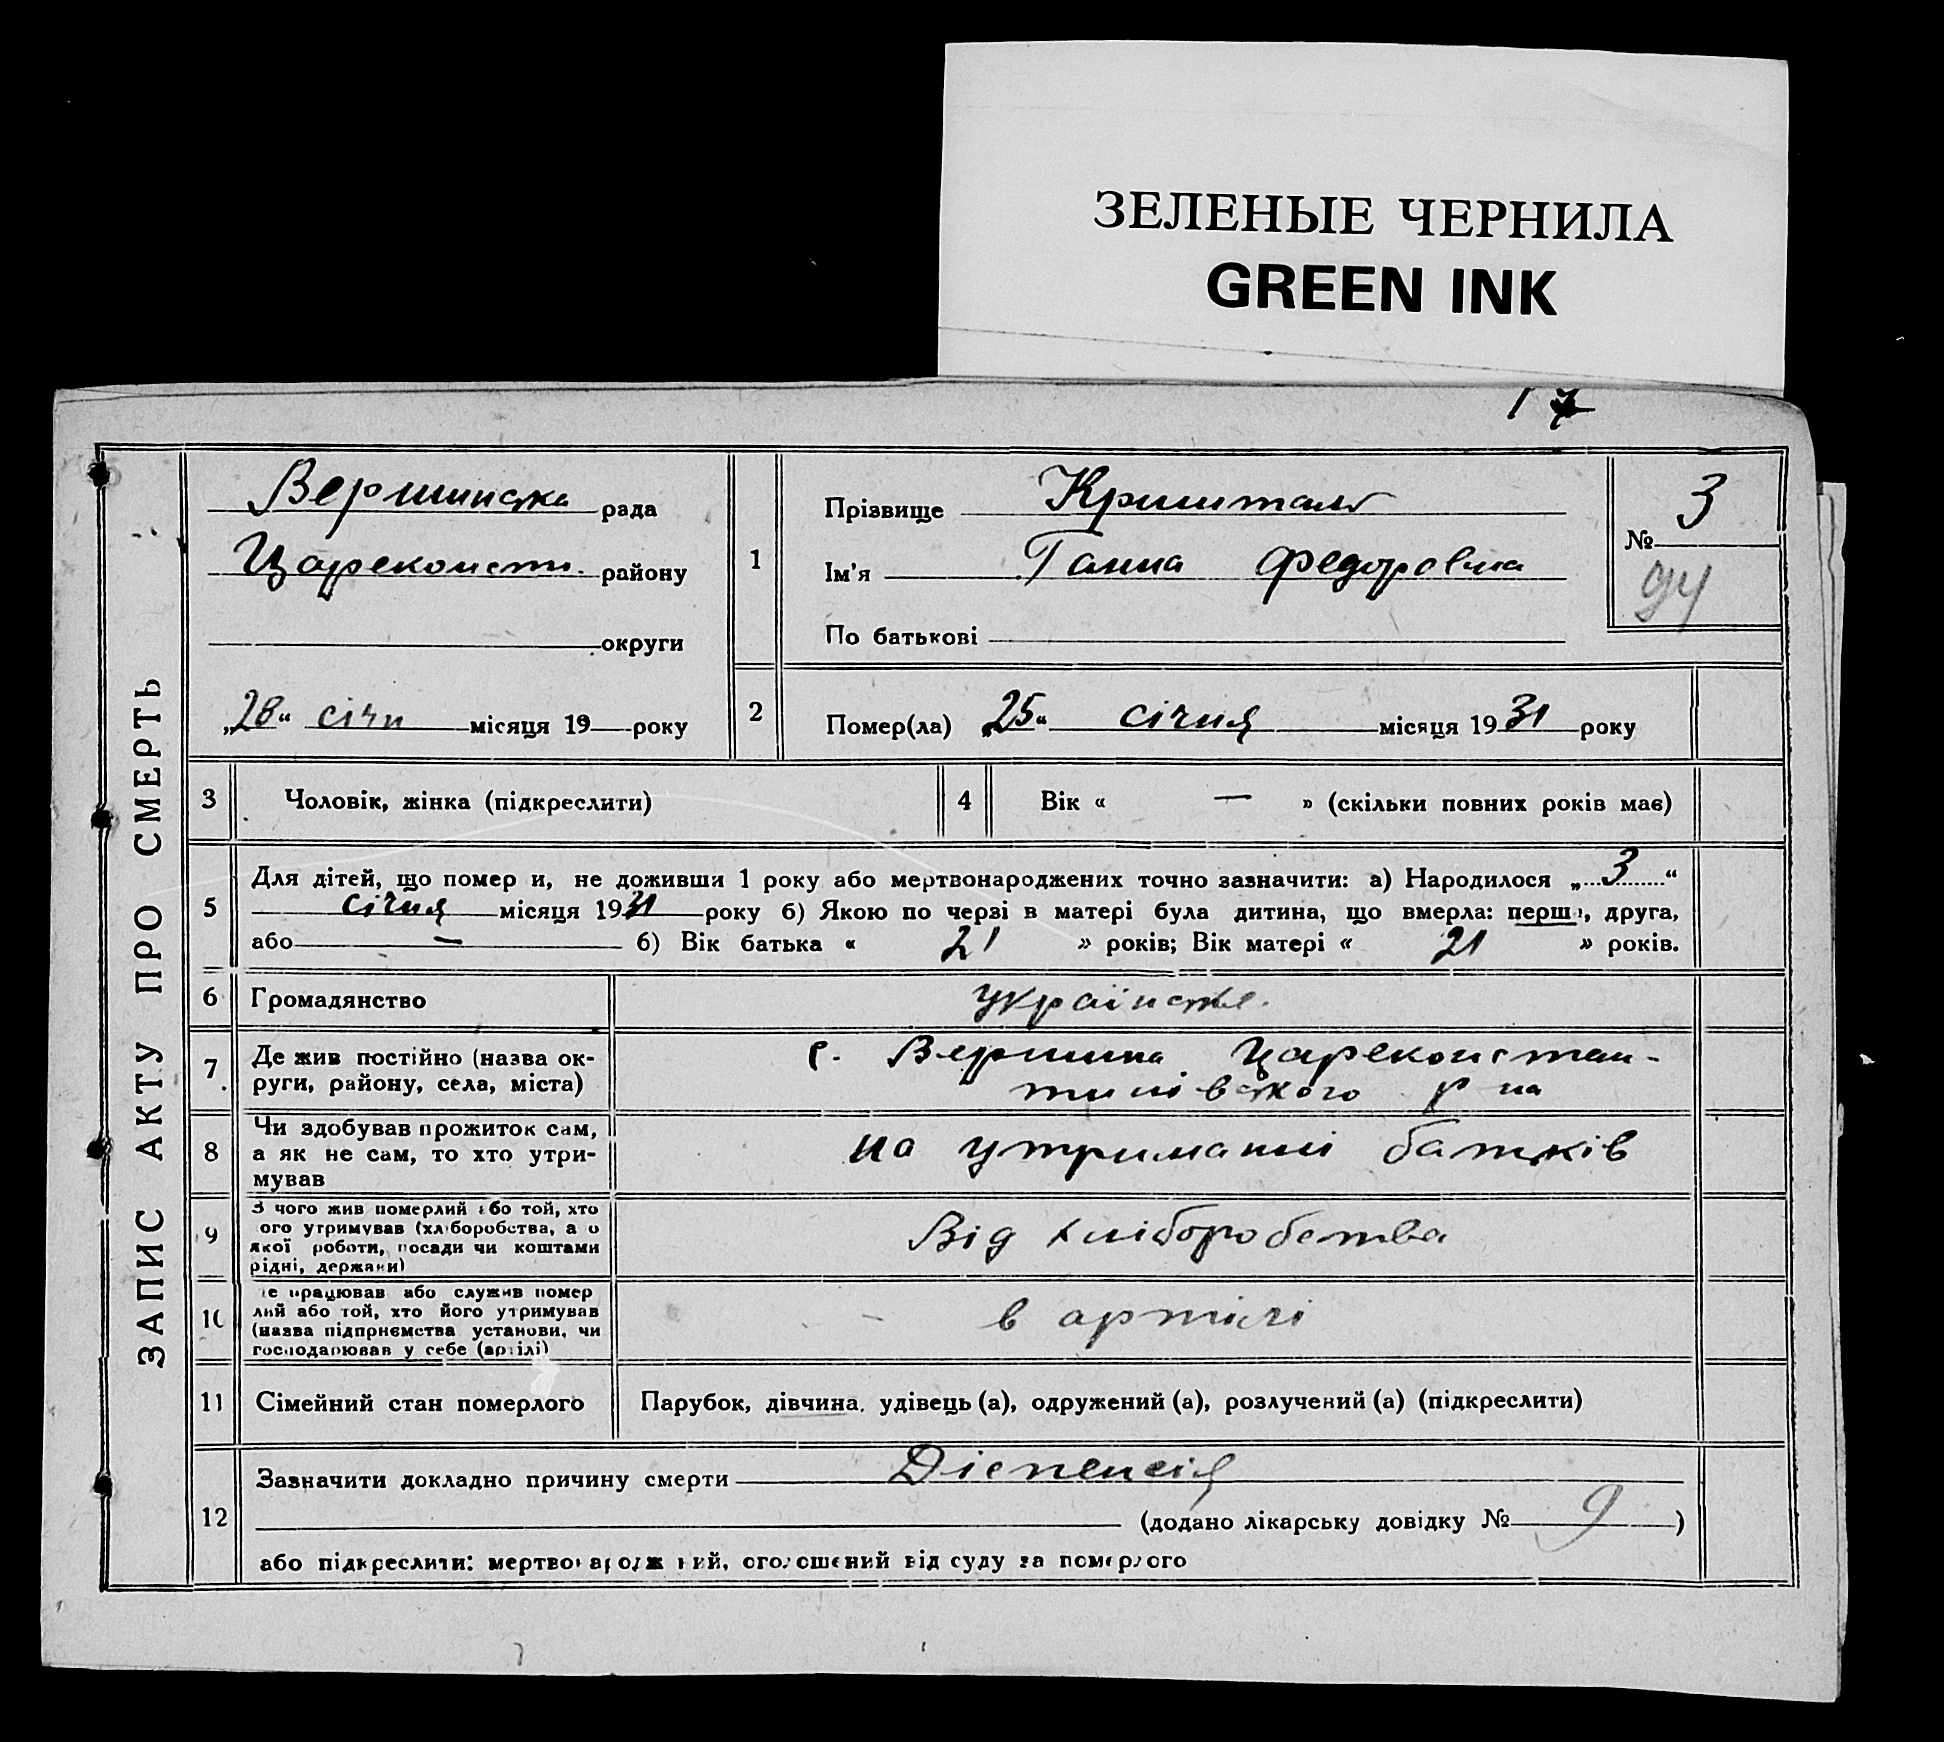 ЗЕЛЕНЫЕ ЧЕРНИЛА
GREEN INK
17
ЗАПИС АКТУ ПРО СМЕРТЬ
Вершинська рада
Цареконстн. району
округи
„28“ січн місяця 19 року
1
Прізвище Кришталь
Ім'я Ганна Федоровна
По батькові
№ 3
94
2
Помер(ла) „25“ січня місяця 1931 року
3 Чоловік, жінка (підкреслити)
4 Вік « — » (скільки повних років має)
5
Для дітей, що помер и, не доживши 1 року або мертвонароджених точно зазначити: а) Народилося „3“
січня місяця 1931 року б) Якою по черзі в матері була дитина, що вмерла: перша, друга,
або — б) Вік батька « 21 » років; Вік матері « 21 » років.
6 Громадянство українське.
7
Де жив постійно (назва ок-
руги, району, села, міста)
с. Вершина Цареконстан-
тинівського р на
8
Чи здобував прожиток сам,
а як не сам, то хто утри-
мував
на утриманні батьків
9
З чого жив померлий або той, хто
ого утримував (хліборобства, а о
якої роботи, посади чи коштами
рідні, держави)
Від хліборобства
10
е працював або служив помер
лий або той, хто його утримував
(назва підприємства установи, чи
господарював у себе (артілі)
в артілі
11 Сімейний стан померлого
Парубок, дівчина, удівець (а), одружений (а), розлучений (а) (підкреслити)
12
Зазначити докладно причину смерти Діспенсія
(додано лікарську довідку № 9 )
або підкреслити: мертвонароджений, оголошений від суду за померлого